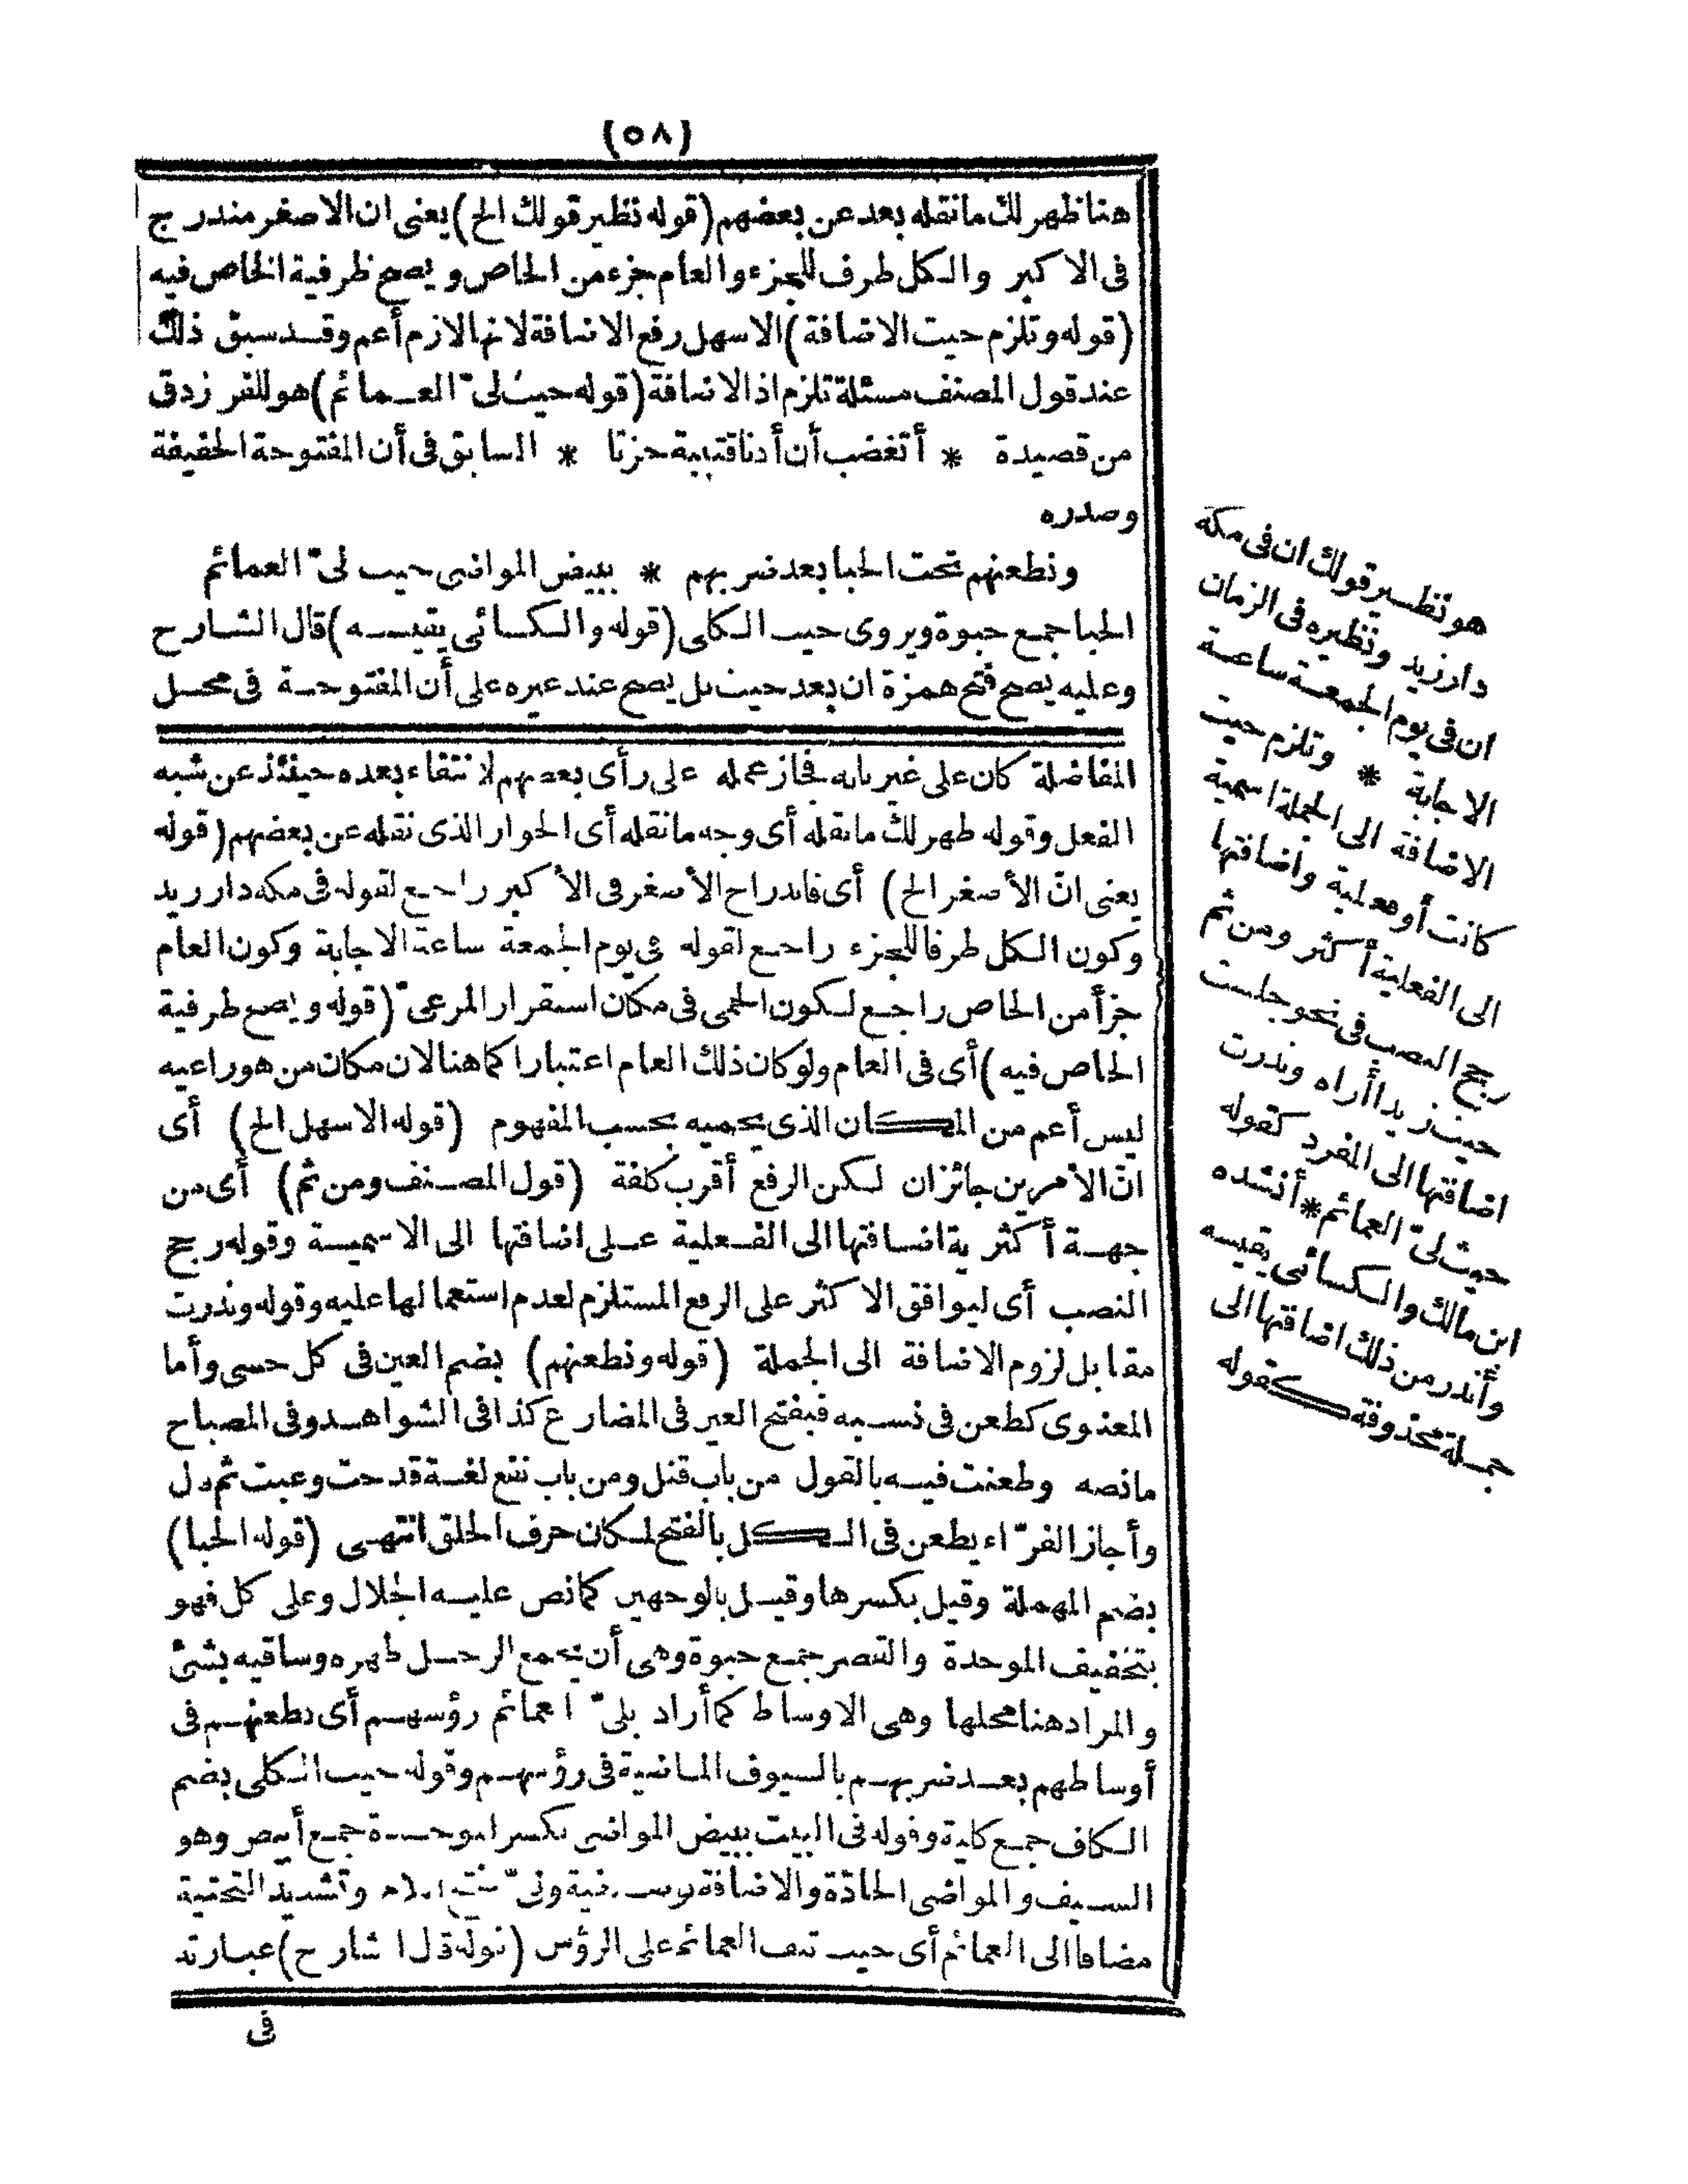 (٥٨)
هنا ظهر لك ما نقله بعد عن بعضهم (قوله نظير قولك الخ) يعنى ان الاصغر مندرج
فى الاكبر والكل ظرف للجزء والعام جزء من الخاص ويصح ظرفية الخاص فيه
(قوله وتلزم حيث الاضافة) الاسهل رفع الاضافة لانها لازم أعم وقد سبق ذلك
عند قول المصنف مسئلة تلزم اذ الاضافة (قوله حيث لىّ العمائم) هو للفرزدق
من قصيدة * أتغضب أن أذنا قتيبة حزتا * السابق فى أن المفتوحة الخفيفة
وصدره
ونطعنهم تحت الحبا بعد ضربهم * ببيض المواضى حيث لىّ العمائم
الحبا جمع حبوة ويروى حيث الكلى (قوله والكسائى يقيسه) قال الشارح
وعليه يصح فتح همزة ان بعد حيث بل يصح عند غيره على أن المفتوحة فى محل
المفاضلة كان على غير بابه فجاز عمله على رأى بعضهم لانتفاء بعده حينئذ عن شبه
الفعل وقوله ظهر لك ما نقله أى وجه ما نقله أى الجواز الذى نقله عن بعضهم (قوله
يعنى انّ الأصغر الخ) أى فاندراج الأصغر فى الأكبر راجع لقوله فى مكه دار زيد
وكون الكل ظرفا للجزء راجع لقوله فى يوم الجمعة ساعة الاجابة وكون العام
جزأ من الخاص راجع لكون الحمى فى مكان استقرار المرعىّ (قوله ويصح ظرفية
الخاص فيه) أى فى العام ولو كان ذلك العام اعتبارا كما هنا لان مكان من هو راعيه
ليس أعم من المكان الذى يحميه بحسب المفهوم (قوله الاسهل الخ) أى
انّ الأمرين جائزان لكن الرفع أقرب كلفة (قول المصنف ومن ثم) أى من
جهة أكثرية اضافتها الى الفعلية على اضافتها الى الاسمية وقوله رجح
النصب أى ليوافق الاكثر على الرفع المستلزم لعدم استعمالها عليه وقوله وندرت
مقابل لزوم الاضافة الى الجملة (قوله ونطعنهم) بضم العين فى كل حسى وأما
المعنوى كطعن فى نسبه فبفتح العين فى المضارع كذا فى الشواهد وفى المصباح
ما نصه وطعنت فيه بالقول من باب قتل ومن باب نفع لغة قدحت وعبت ثم قال
وأجاز الفرّاء يطعن فى الكل بالفتح لمكان حرف الحلق انتهى (قوله الحبا)
بضم المهملة وقيل بكسرها وقيل بالوجهين كما نص عليه الجلال وعلى كل فهو
بتخفيف الموحدة والقصر جمع حبوة وهى أن يجمع الرجل ظهره وساقيه بشئ
والمراد هنا محلها وهى الاوساط كما أراد بلىّ العمائم رؤسهم أى نطعنهم فى
أوساطهم بعد ضربهم بالسيوف الماضية فى رؤسهم وقوله حيث الكلى بضم
الكاف جمع كلية وقوله فى البيت ببيض المواضى بكسر الموحدة جمع أبيض وهو
السيف والمواضى الحادّة والاضافة ولىّ وتشديد التحتية
مضافا الى العمائم أى حيث تلف العمائم على الرؤس (قوله قال الشارح) عبارته
فى
هو نظير قولك ان فى مكه
دار زيد ونظيره فى الزمان
ان فى يوم الجمعة ساعة
الاجابة * وتلزم حيث
الاضافة الى الجملة اسمية
كانت أو فعلية واضافتها
الى الفعلية أكثر ومن ثم
رجح النصب فى نحو جلست
حيث زيدا أراه وندرت
اضافتها الى المفرد كقوله
حيث لىّ العمائم * أنشده
ابن مالك والكسائى يقيسه
وأندر من ذلك اضافتها الى
جملة محذوفة كقوله